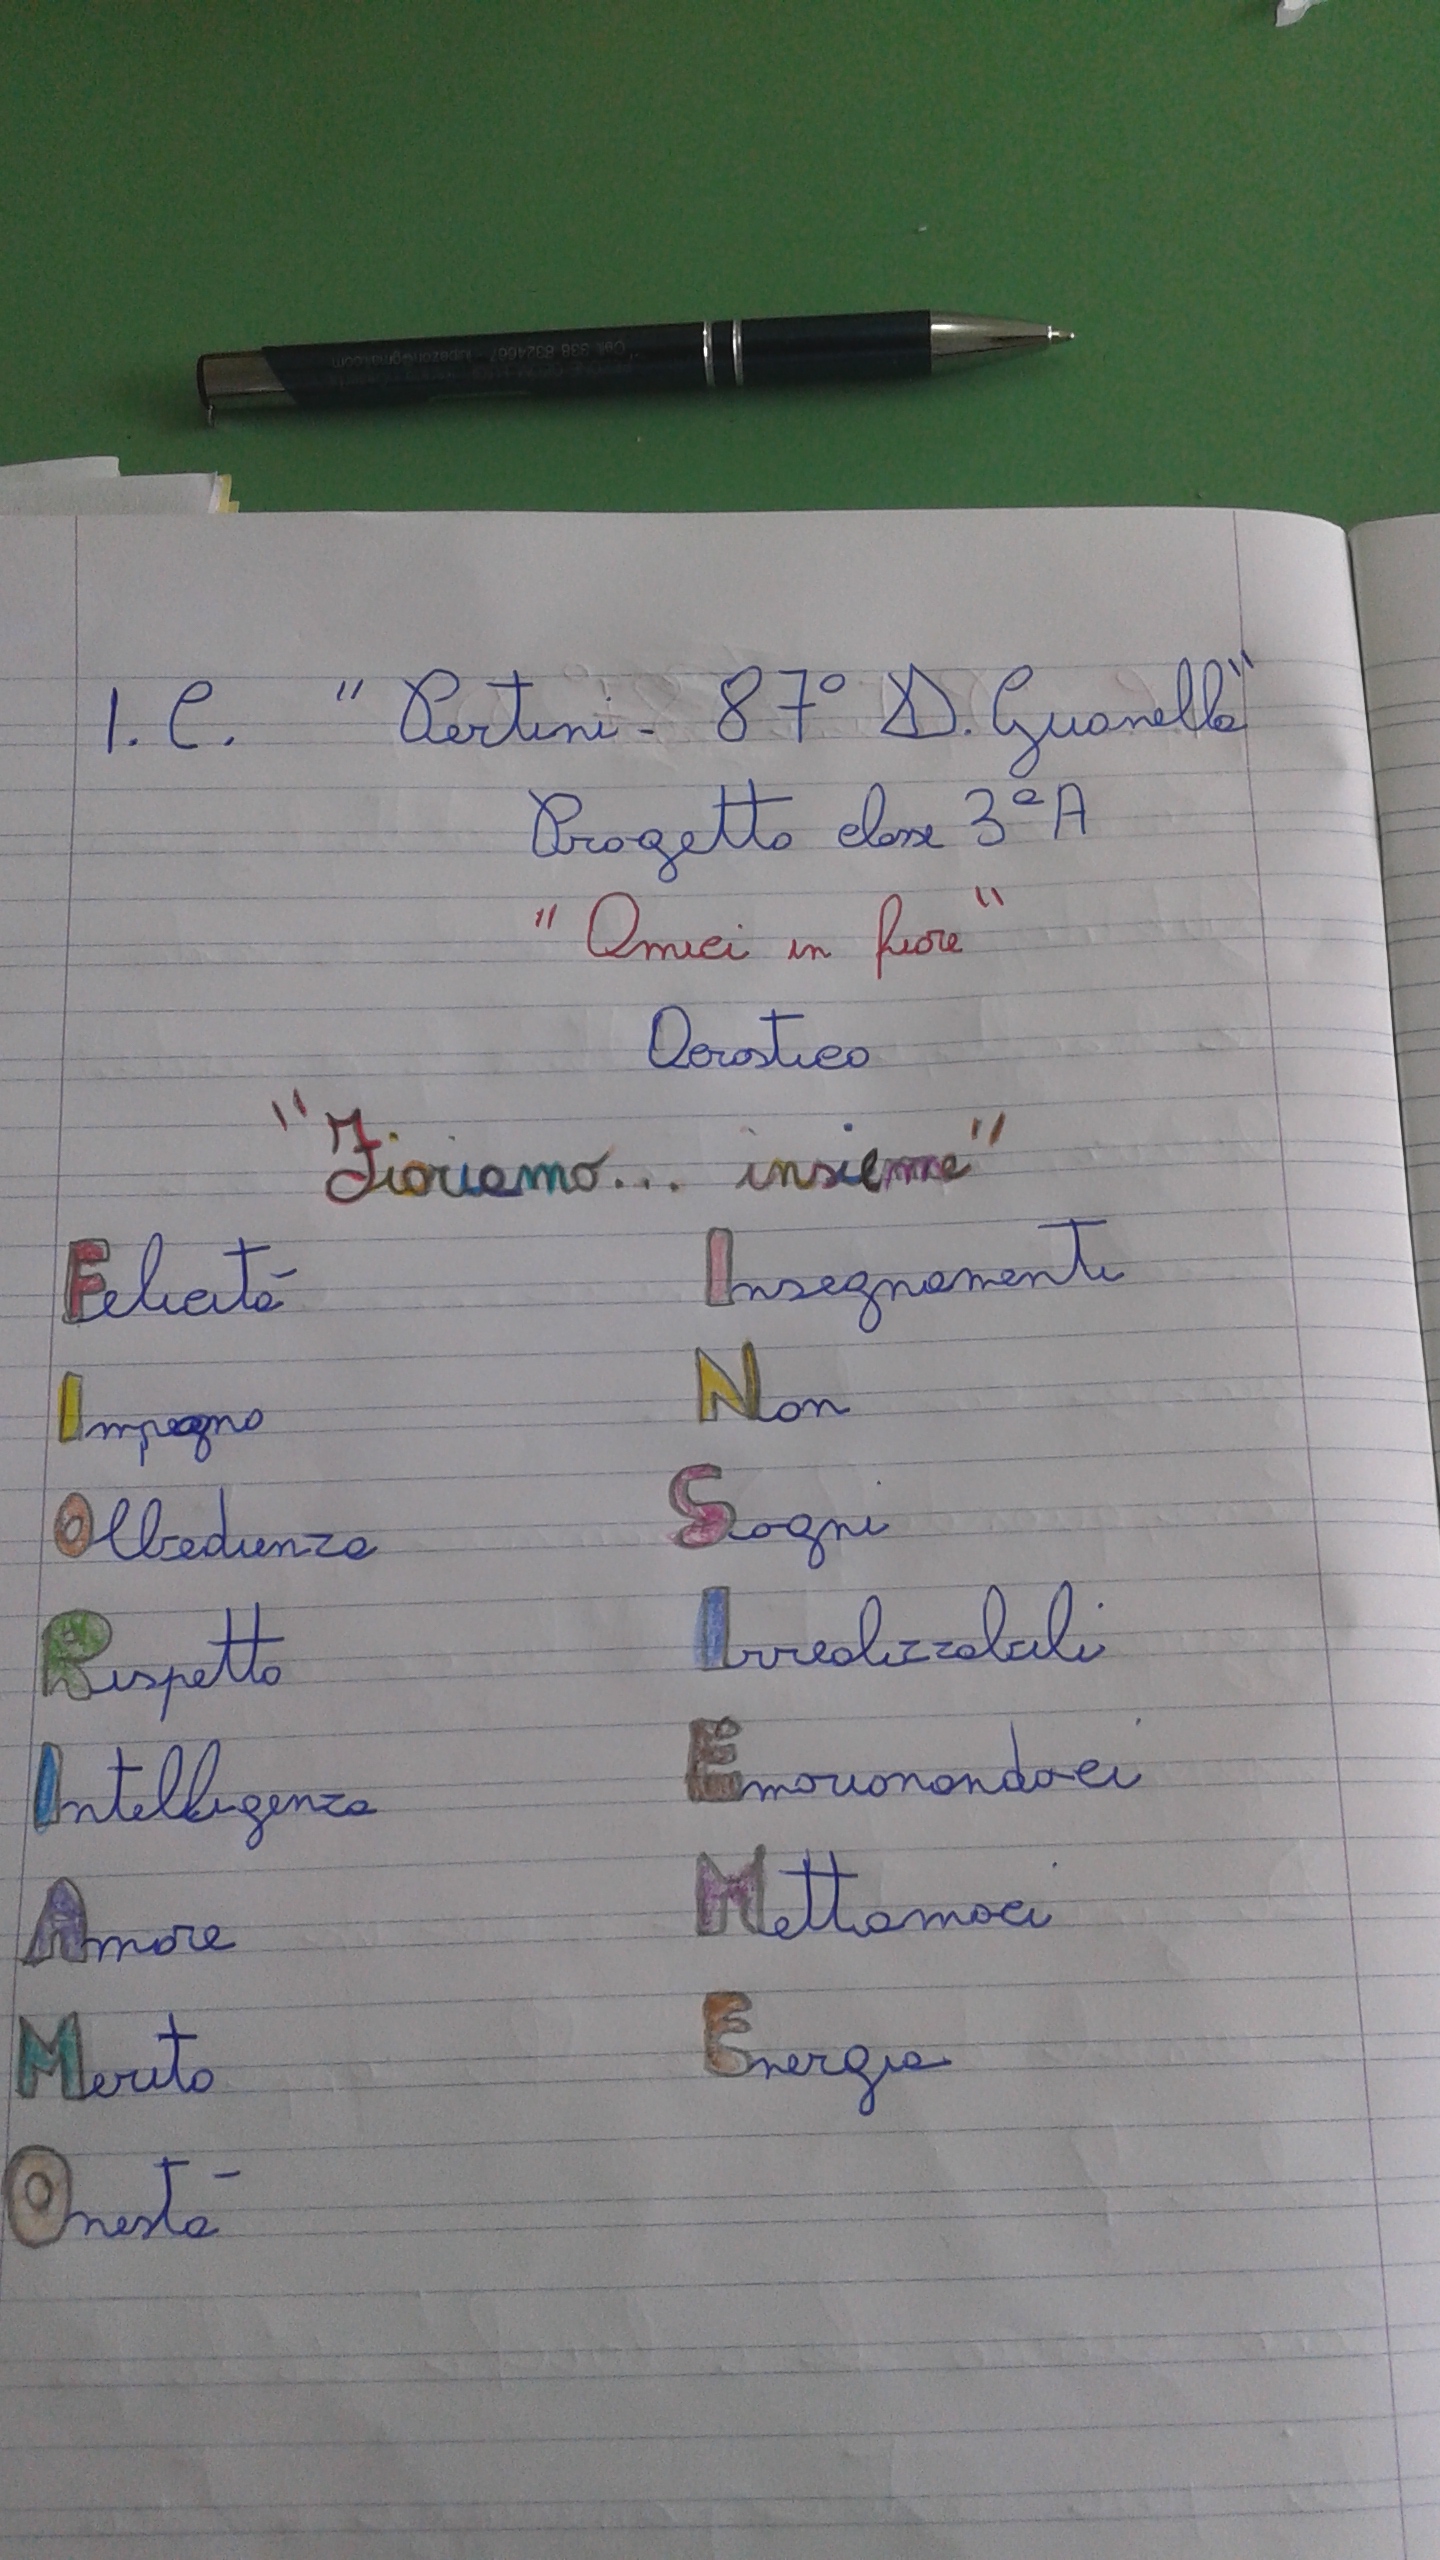 I.C. "Pertini - 87° D. Guanella"
Progetto classe 3ªA
"Amici in fiore"
Acrostico
"Fioriamo... insieme"
Felicità
Impegno
Obbedienza
Rispetto
Intelligenza
Amore
Merito
Onestà
Insegnamenti
Non
Sogni
Irrealizzabili
Emozionandoci
Mettiamoci
Energia